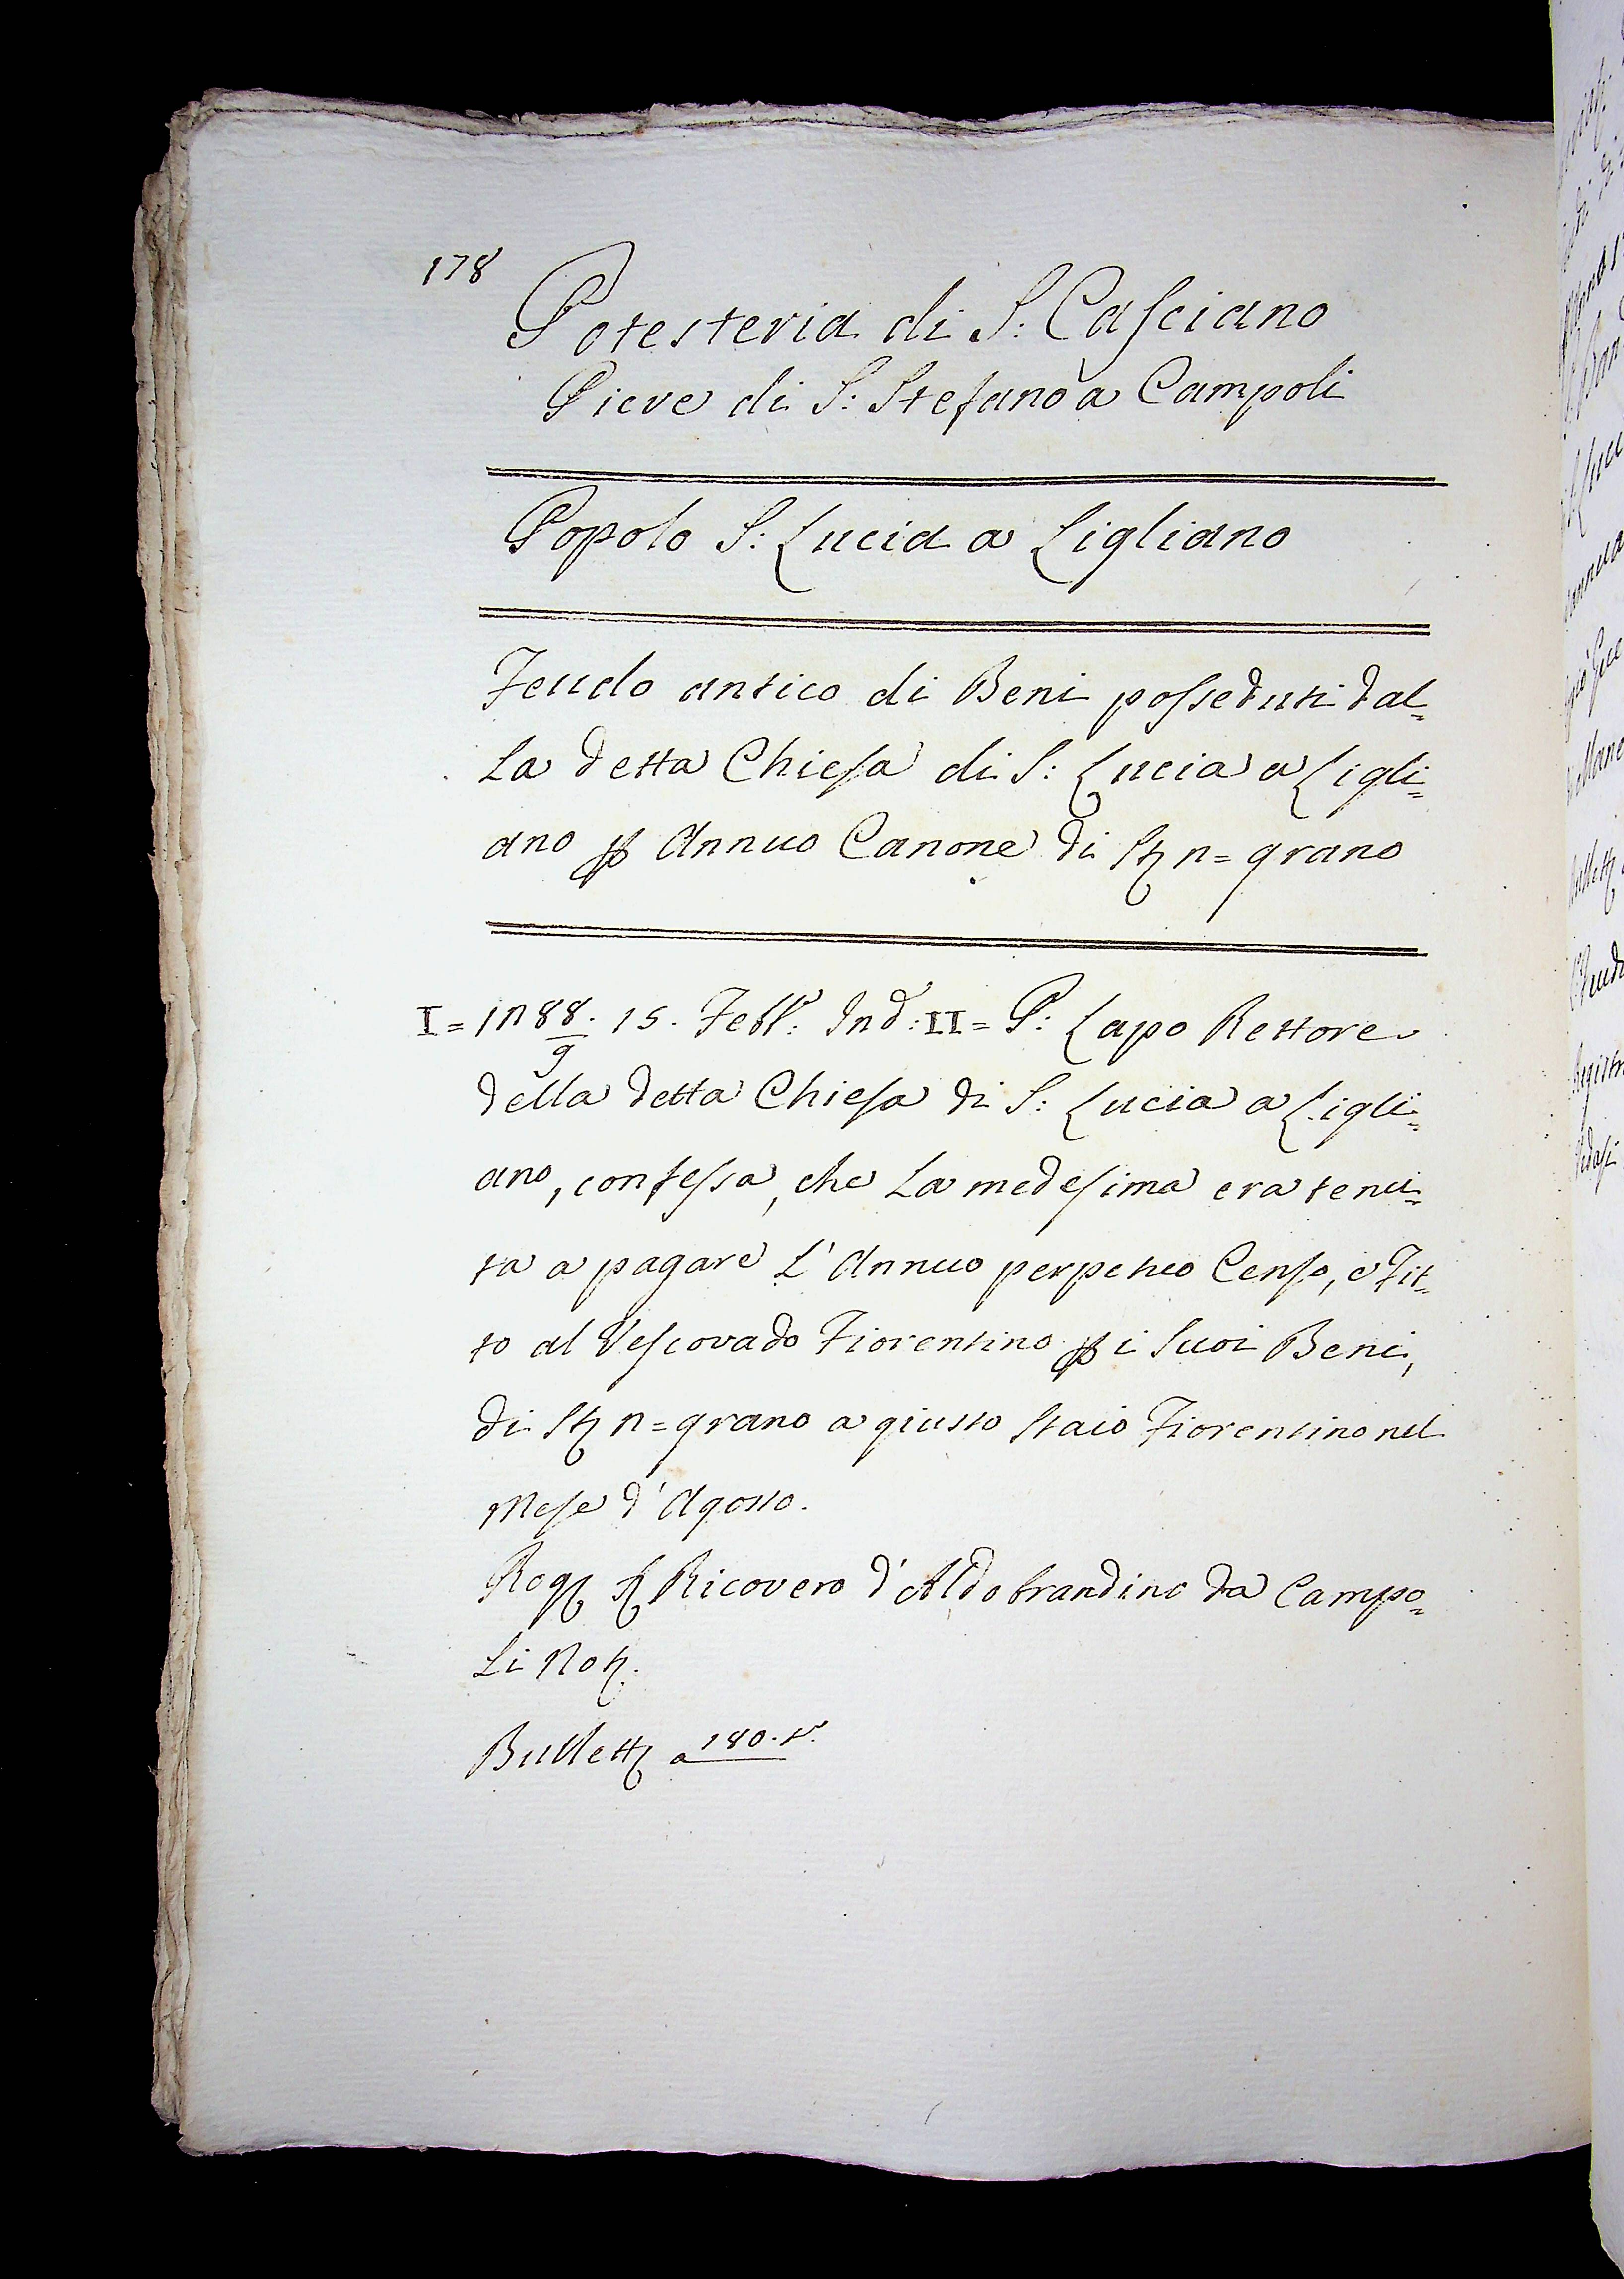 178
Potesteria di S: Casciano
Pieve di S: Stefano à Campoli
Popolo S: Lucia a Ligliano
Feudo antico di Beni posseduti dal=
la detta Chiesa di S: Lucia a Ligli=
ano p Annuo Canone di St 2= grano
I= 1288. 15. Febb: Ind: II= P: Lapo Rettore
9
della detta Chiesa di S: Lucia a Ligli=
ano, confessa, che la medesima era tenu=
ta a pagare l'Annuo perpetuo Censo, e Fit=
to al Vescovado Fiorentino p i suoi Beni,
di St 2= grano a giusto Staio Fiorentino nel
Mese d'Agosto.
Rog S Ricovero d'Aldobrandino da Campo=
li Not.
Bullett a 180. t.